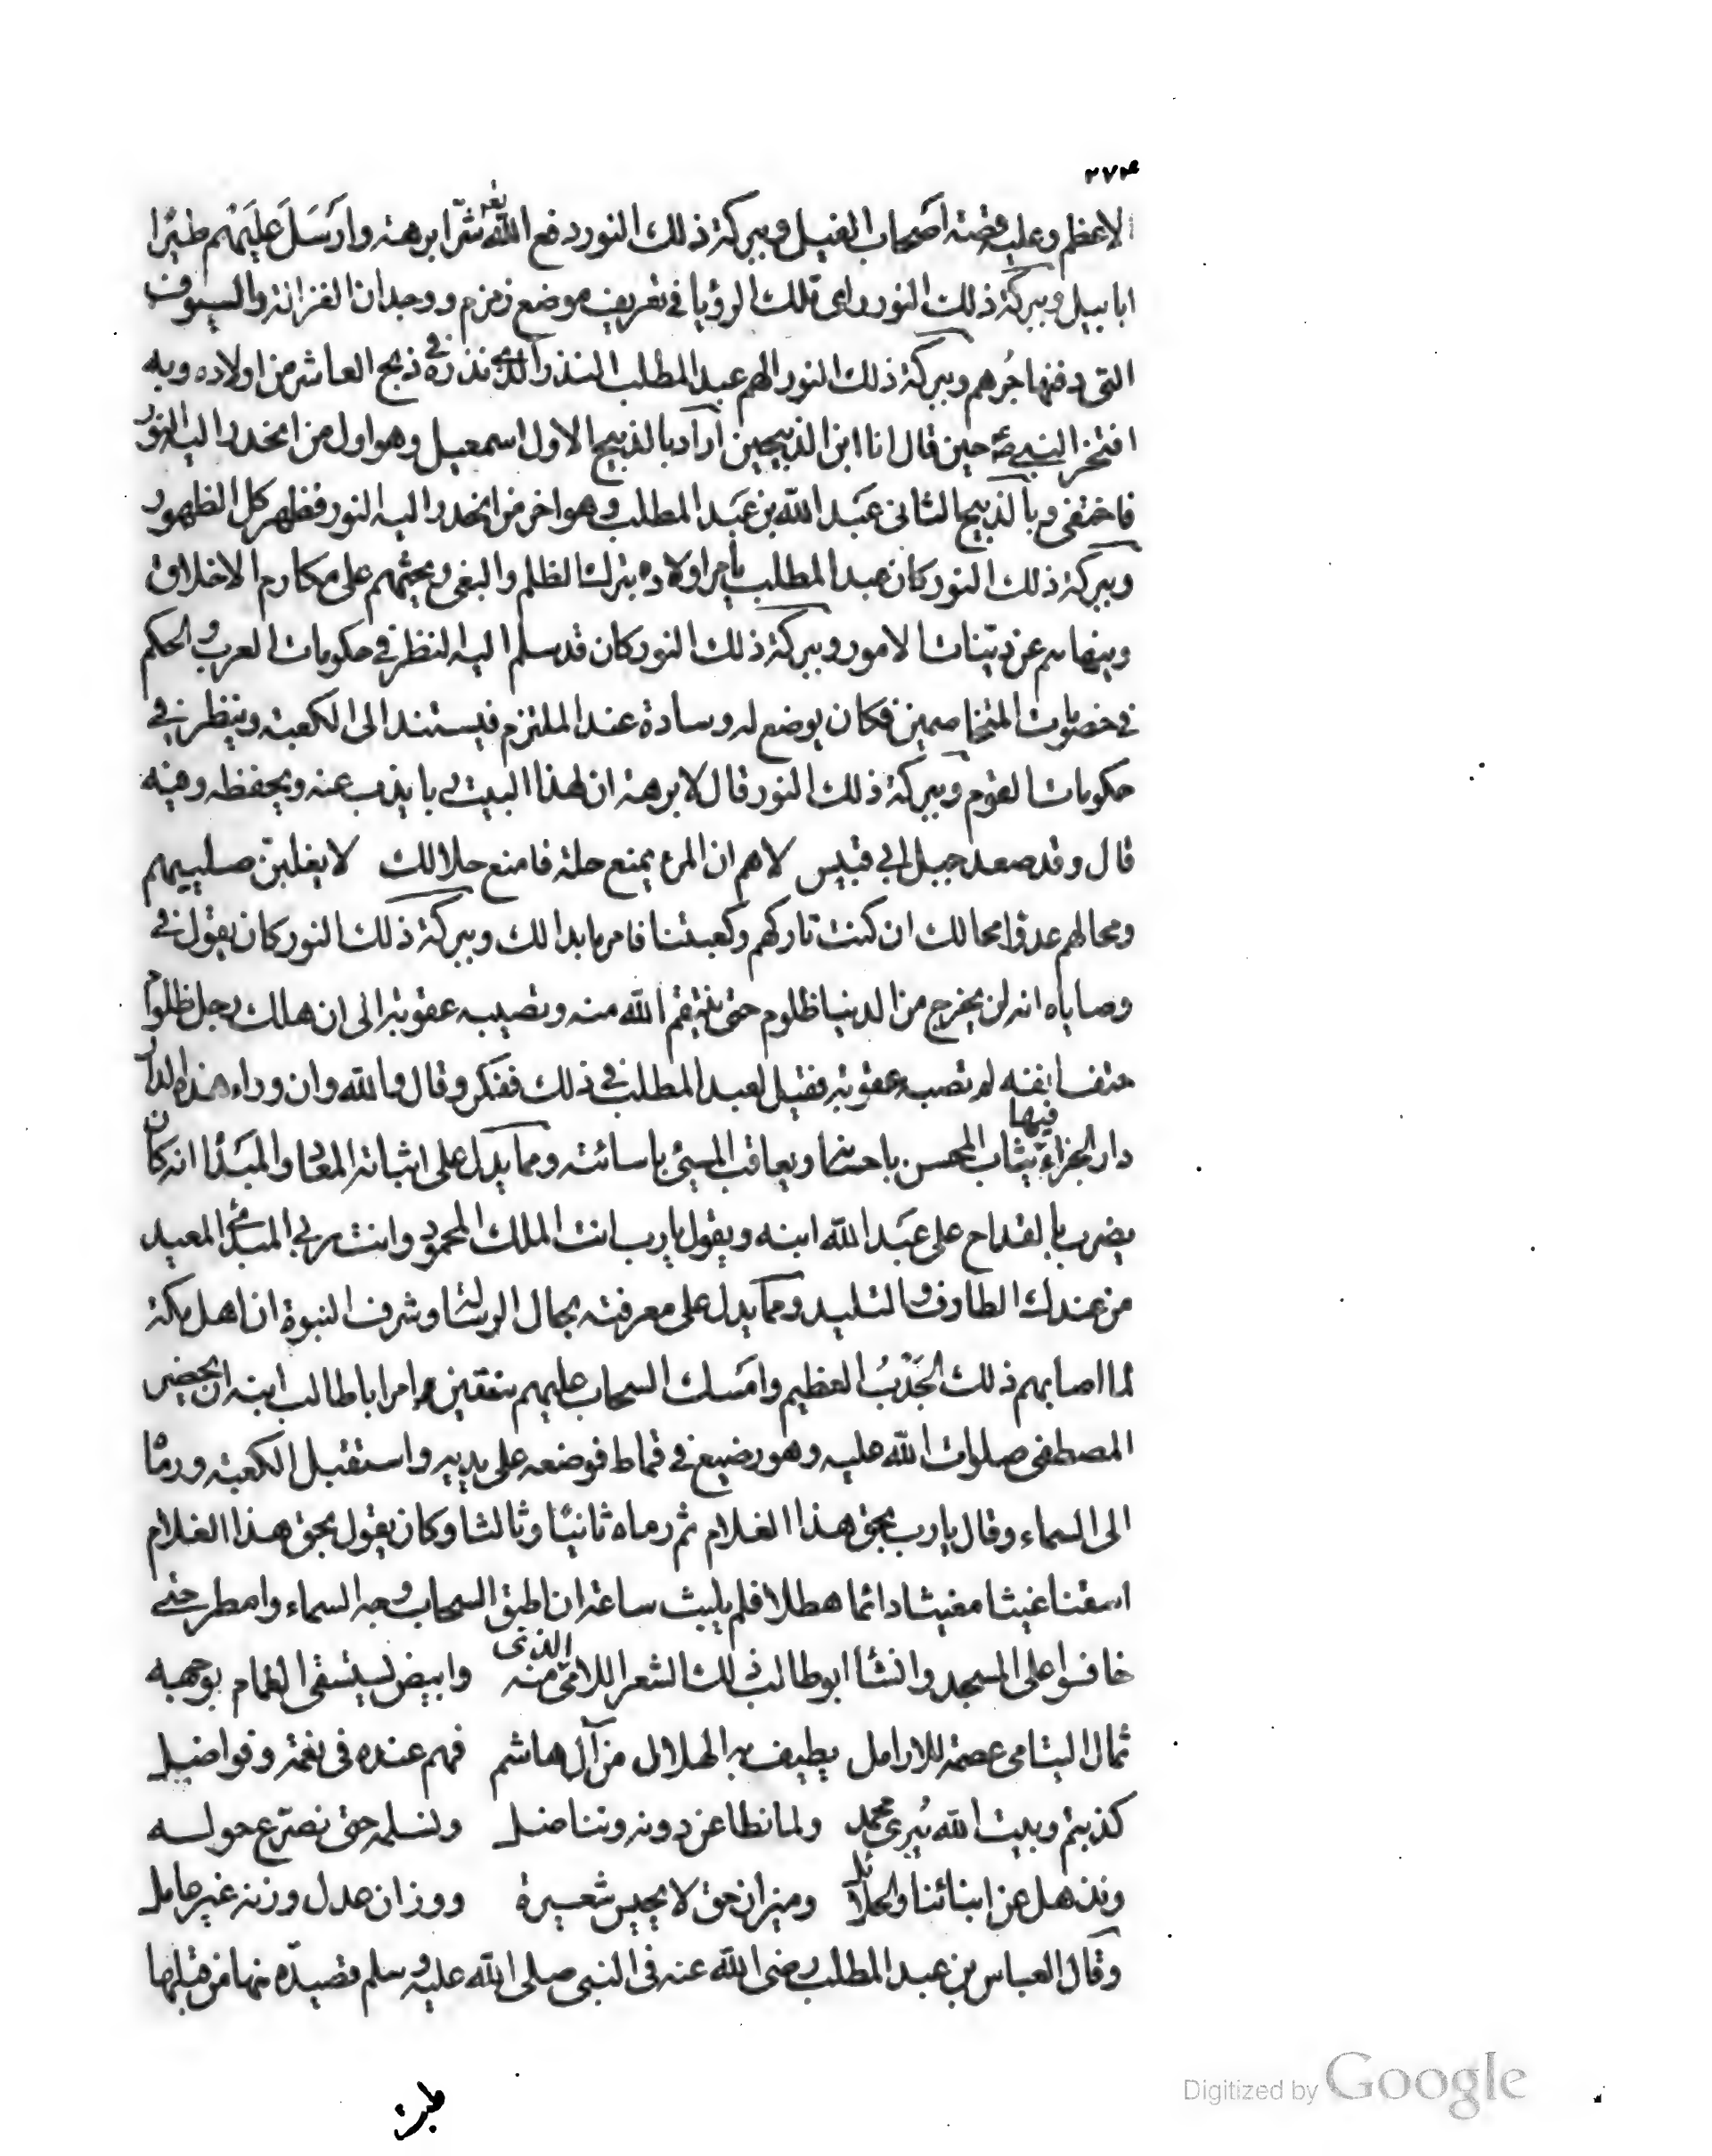 ٢٧٤
الاعظم وعليه قصة اصحاب الفيل وببركة ذلك النور دفع الله تعا شرّ ابرهة وارَسَلَ عليَهْم طيرًا
ابابيل وببركة ذلك النور راى تلك الرؤيا في تعريف موضع زمزم ووجدان الغزالة والسيوف
التى دفنها جُرهم وببركة ذلك النور الهم عبد المطلب النذر الذى نذره في ذبح العاشر من اولاده وبه
افتخر النبي ص حين قال انا ابن الذبيحين اراد بالذبيح الاول اسمعيل وهو اول من انحدر اليه النور
فاختفى وبالذبيح الثانى عَبد الله بن عَبد المطلب وهو اخر من انحدر اليه النور فظهر كل الظهور
وببركة ذلك النور كان عبد المطلب يأمر اولاده بترك الظلم والبغى ويحثهم على مكارم الاخلاق
وينهاهم عن دنيّات الامور وببركة ذلك النور كان قد سلم اليه النظر في حكومات العرب والحكم
في خصومات المتخاصمين فكان يوضع له وسادة عند الملتزم فيستند الى الكعبة وينظر في
حكومات القوم وببركة ذلك النور قال لابرهة ان لهذا البيت ربا يذب عنه ويحفظه وفيه
قال وقد صعد جبل ابي قبيس لاهم ان المرء يمنع حله فامنع حلالك لا يغلبنّ صليبهم
ومحالهم عدوًا محالك ان كنت تاركهم وكعبتنا فامر ما بدا لك وببركة ذلك النور كان يقول في
وصاياه انه لن يخرج من الدنيا ظلوم حتى ينتقم الله منه وتصيبه عقوبة الى ان هلك رجل ظلوم
حتف انفه لم تصبه عقوبة فقيل لعبد المطلب في ذلك ففكر وقال والله وان وراء هذه الدار
دار الجزاء فيها يثاب المحسن باحسانه ويعاقب المسئ باسائته ومما يدل على اثباته المعاد والمبَدأ انه كان
يضرب بالقداح على عَبد الله ابنه ويقول يا رب انت الملك المحمود وانت ربي المبدئ المعيد
من عندك الطارف والتليد ومما يدل على معرفته بحال الرسالة وشرف النبوة ان اهل مكة
لما اصابهم ذلك الجَدْبُ العظيم وامَسك السحاب عليهم سنتين امر ابا طالب ابنه ان يحضر
المصطفى صلوات الله عليه وهو رضيع في قماط فوضعه على يديه واستقبل الكعبة ورماه
الى السماء وقال يا رب بحق هذا الغلام ثم رماه ثانيًا وثالثا وكان يقول بحق هذا الغلام
اسقنا غيثا مغيثا دائما هطلا فلم يلبث ساعة ان طبق السحاب وجه السماء وامطر حتى
خافوا على المسجد وانشأ ابو طالب ذلك الشعر اللامى الذى منه وابيض يستسقى الغمام بوجهه
ثمال اليتامى عصمة للارامل يطيف به الهلال من آل هاشم فهم عنده فى نعمة وفواضل
كذبتم وبيت الله نُبزى محمد ولما نطاعن دونه ونناضل ونسلمه حتى نصرّع حوله
ونذهل عن ابنائنا والحلائل وميزان حق لا يخيس شعيرة ووزان عدل وزنه غير عامل
وقال العباس بن عبد المطلب رضى الله عنه فى النبى صلى الله عليه وسلم قصيدة منها من قبلها
طبت
Digitized by Google